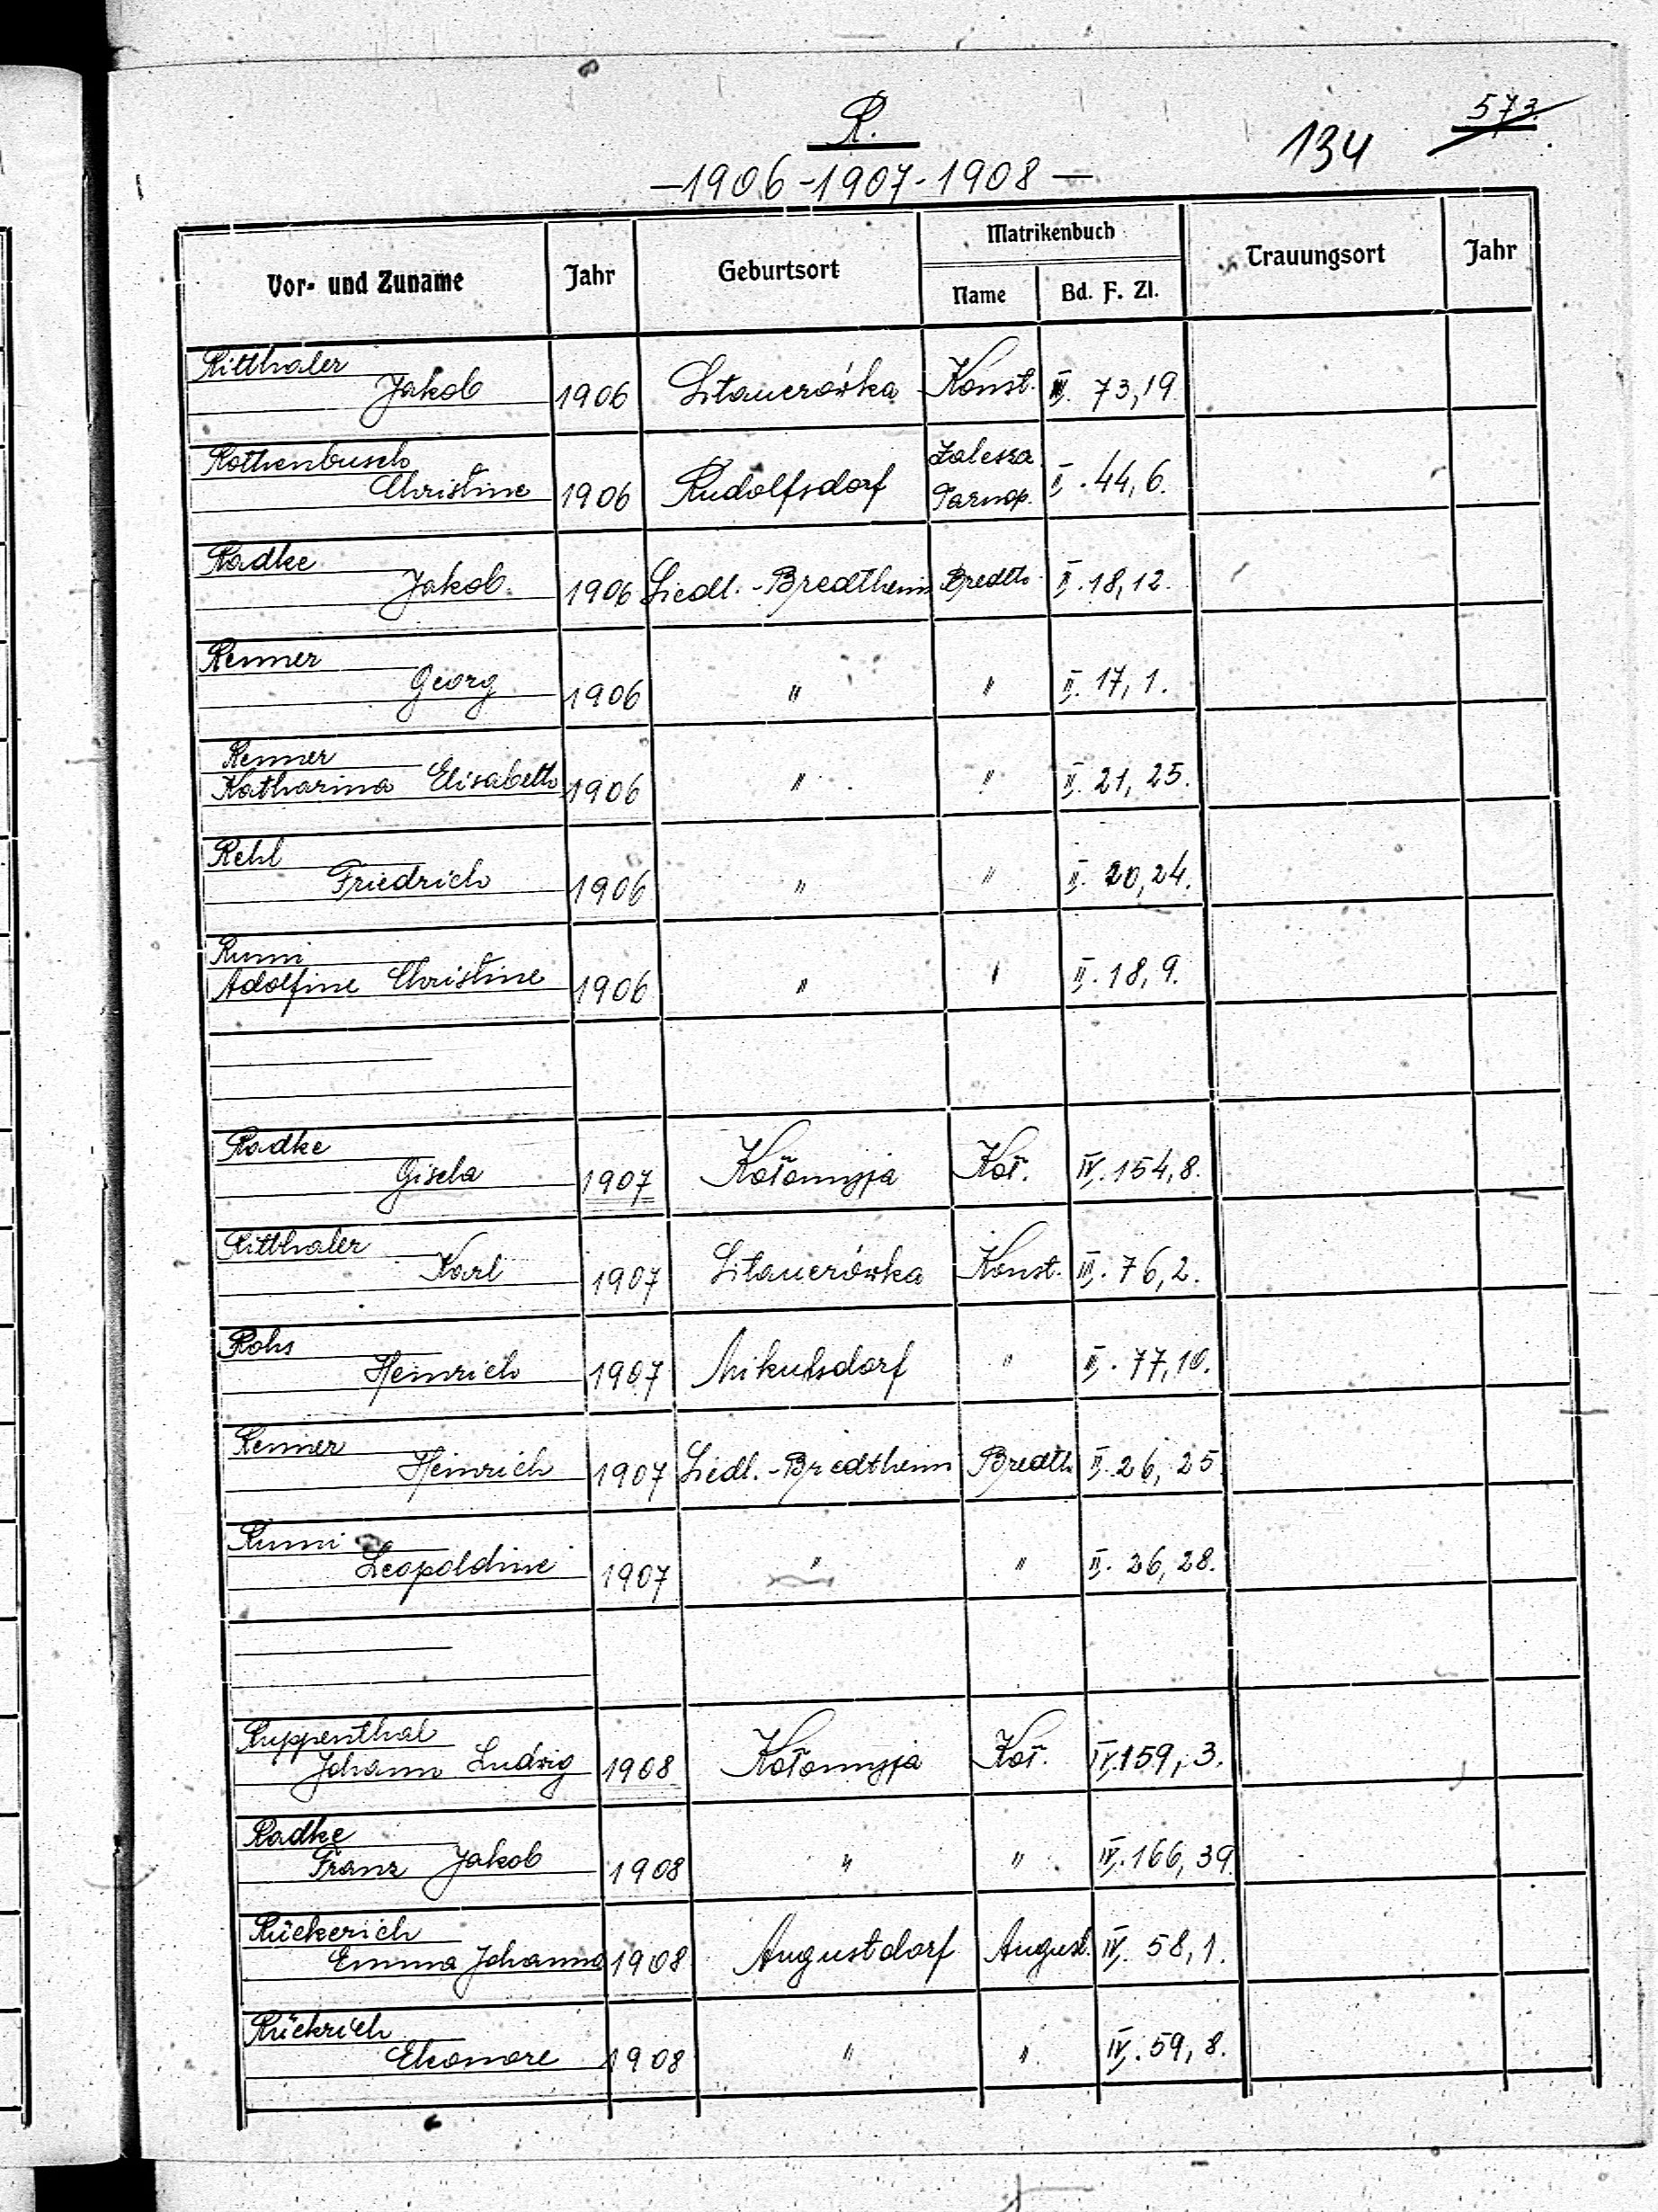 R.
134 573.
—1906-1907-1908—
Vor- und Zuname Jahr Geburtsort Matrikenbuch Trauungsort Jahr
Name Bd. F. Zl.
Ritthaler
Jakob 1906 Sitauerówka Konst. III. 73,19.
Rothenbusch Zalesza
Christine 1906 Rudolfsdorf Tarnop. I. 44,6.
Radke
Jakob. 1906 Siedl.-Bredtheim Bredth. II. 18,12.
Renner
Georg 1906 " " II. 17,1.
Renner
Katharina Elisabeth 1906 " " II. 21,25.
Rehl
Friedrich 1906 " " II. 20,24.
Rumi
Adolfine Christine 1906 " " II. 18,9.
Radke
Gisela 1907 Kołomyja Koł. IV. 154,8.
Ritthaler
Karl 1907 Sitauerówka Konst. III. 76,2.
Rohs
Heinrich 1907 Mikulsdorf " III. 77,10.
Renner
Heinrich 1907 Siedl.-Bredtheim Bredth. II. 26,25
Rumi
Leopoldine 1907 " " II. 26,28.
Ruppenthal
Johann Ludwig 1908 Kołomyja Koł. IV. 159,3.
Radke
Franz Jakob 1908 " " IV. 166,39.
Rückerich
Emma Johanna 1908 Augustdorf August. IV. 58,1.
Rückrich
Eleonore 1908 " " IV. 59,8.